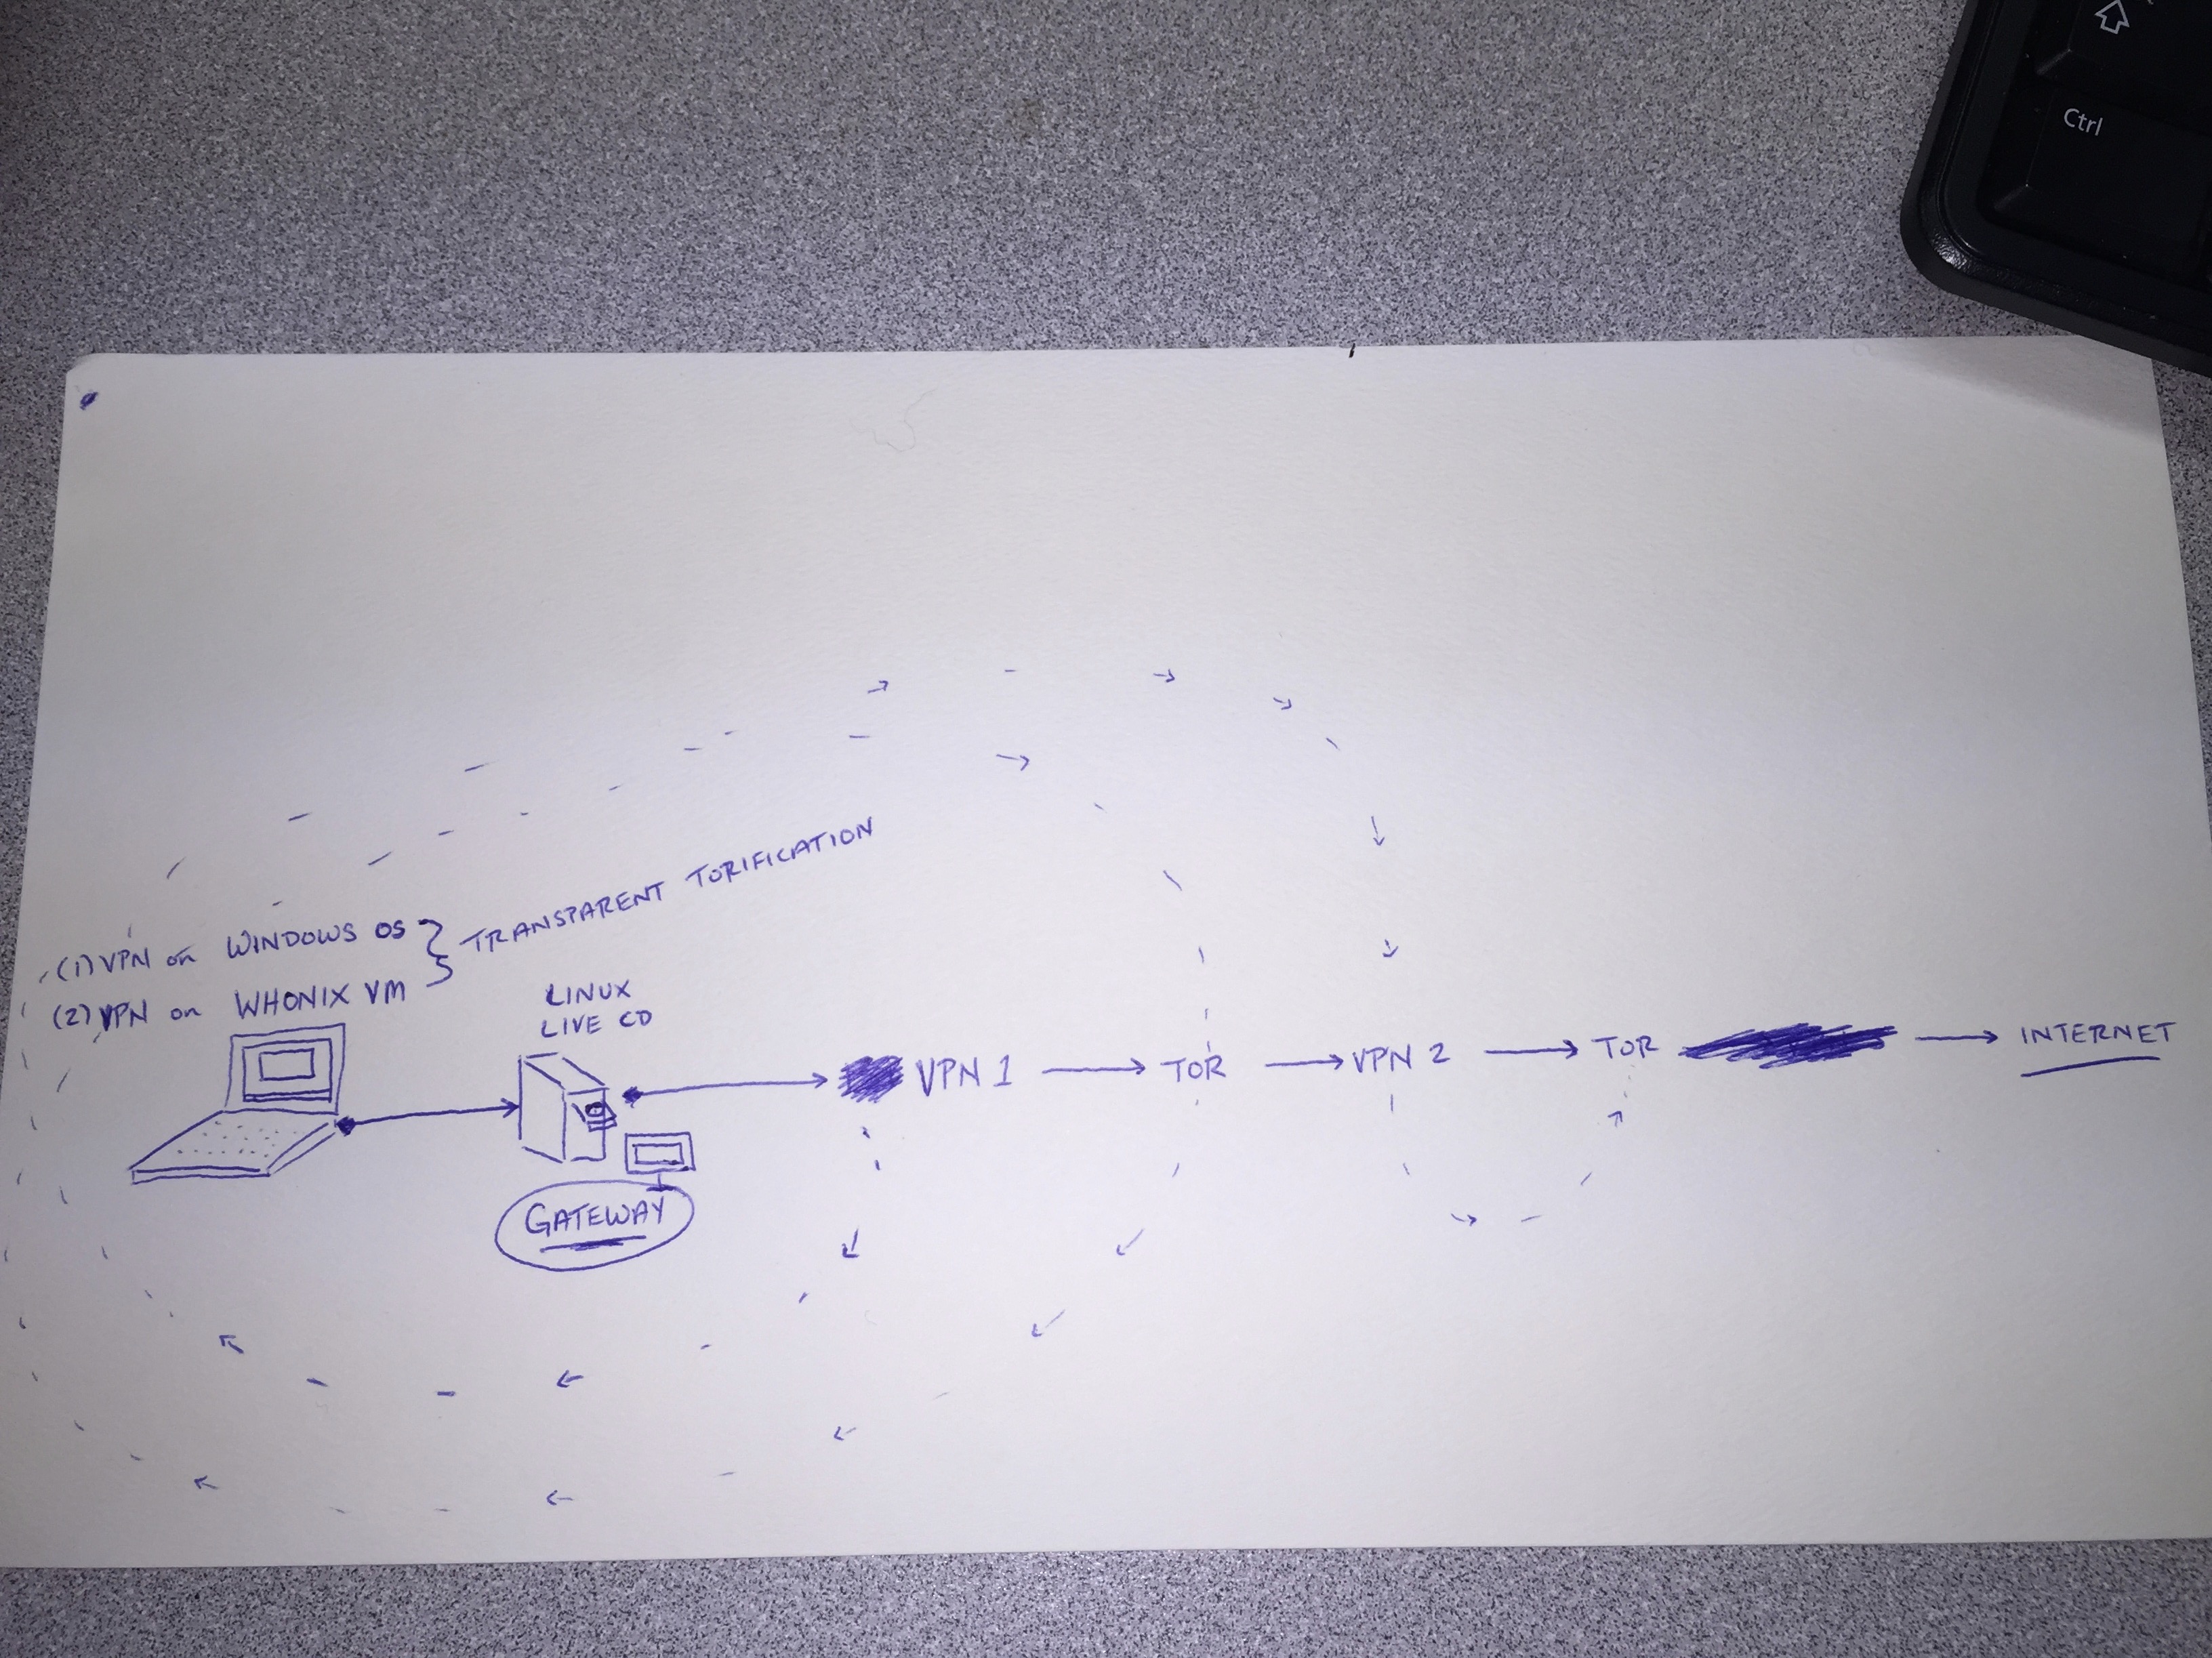 Ctrl
(1) VPN on WINDOWS OS
(2) VPN on WHONIX VM
TRANSPARENT TORIFICATION
LINUX
LIVE CD
GATEWAY
VPN 1
TOR
VPN 2
TOR
INTERNET